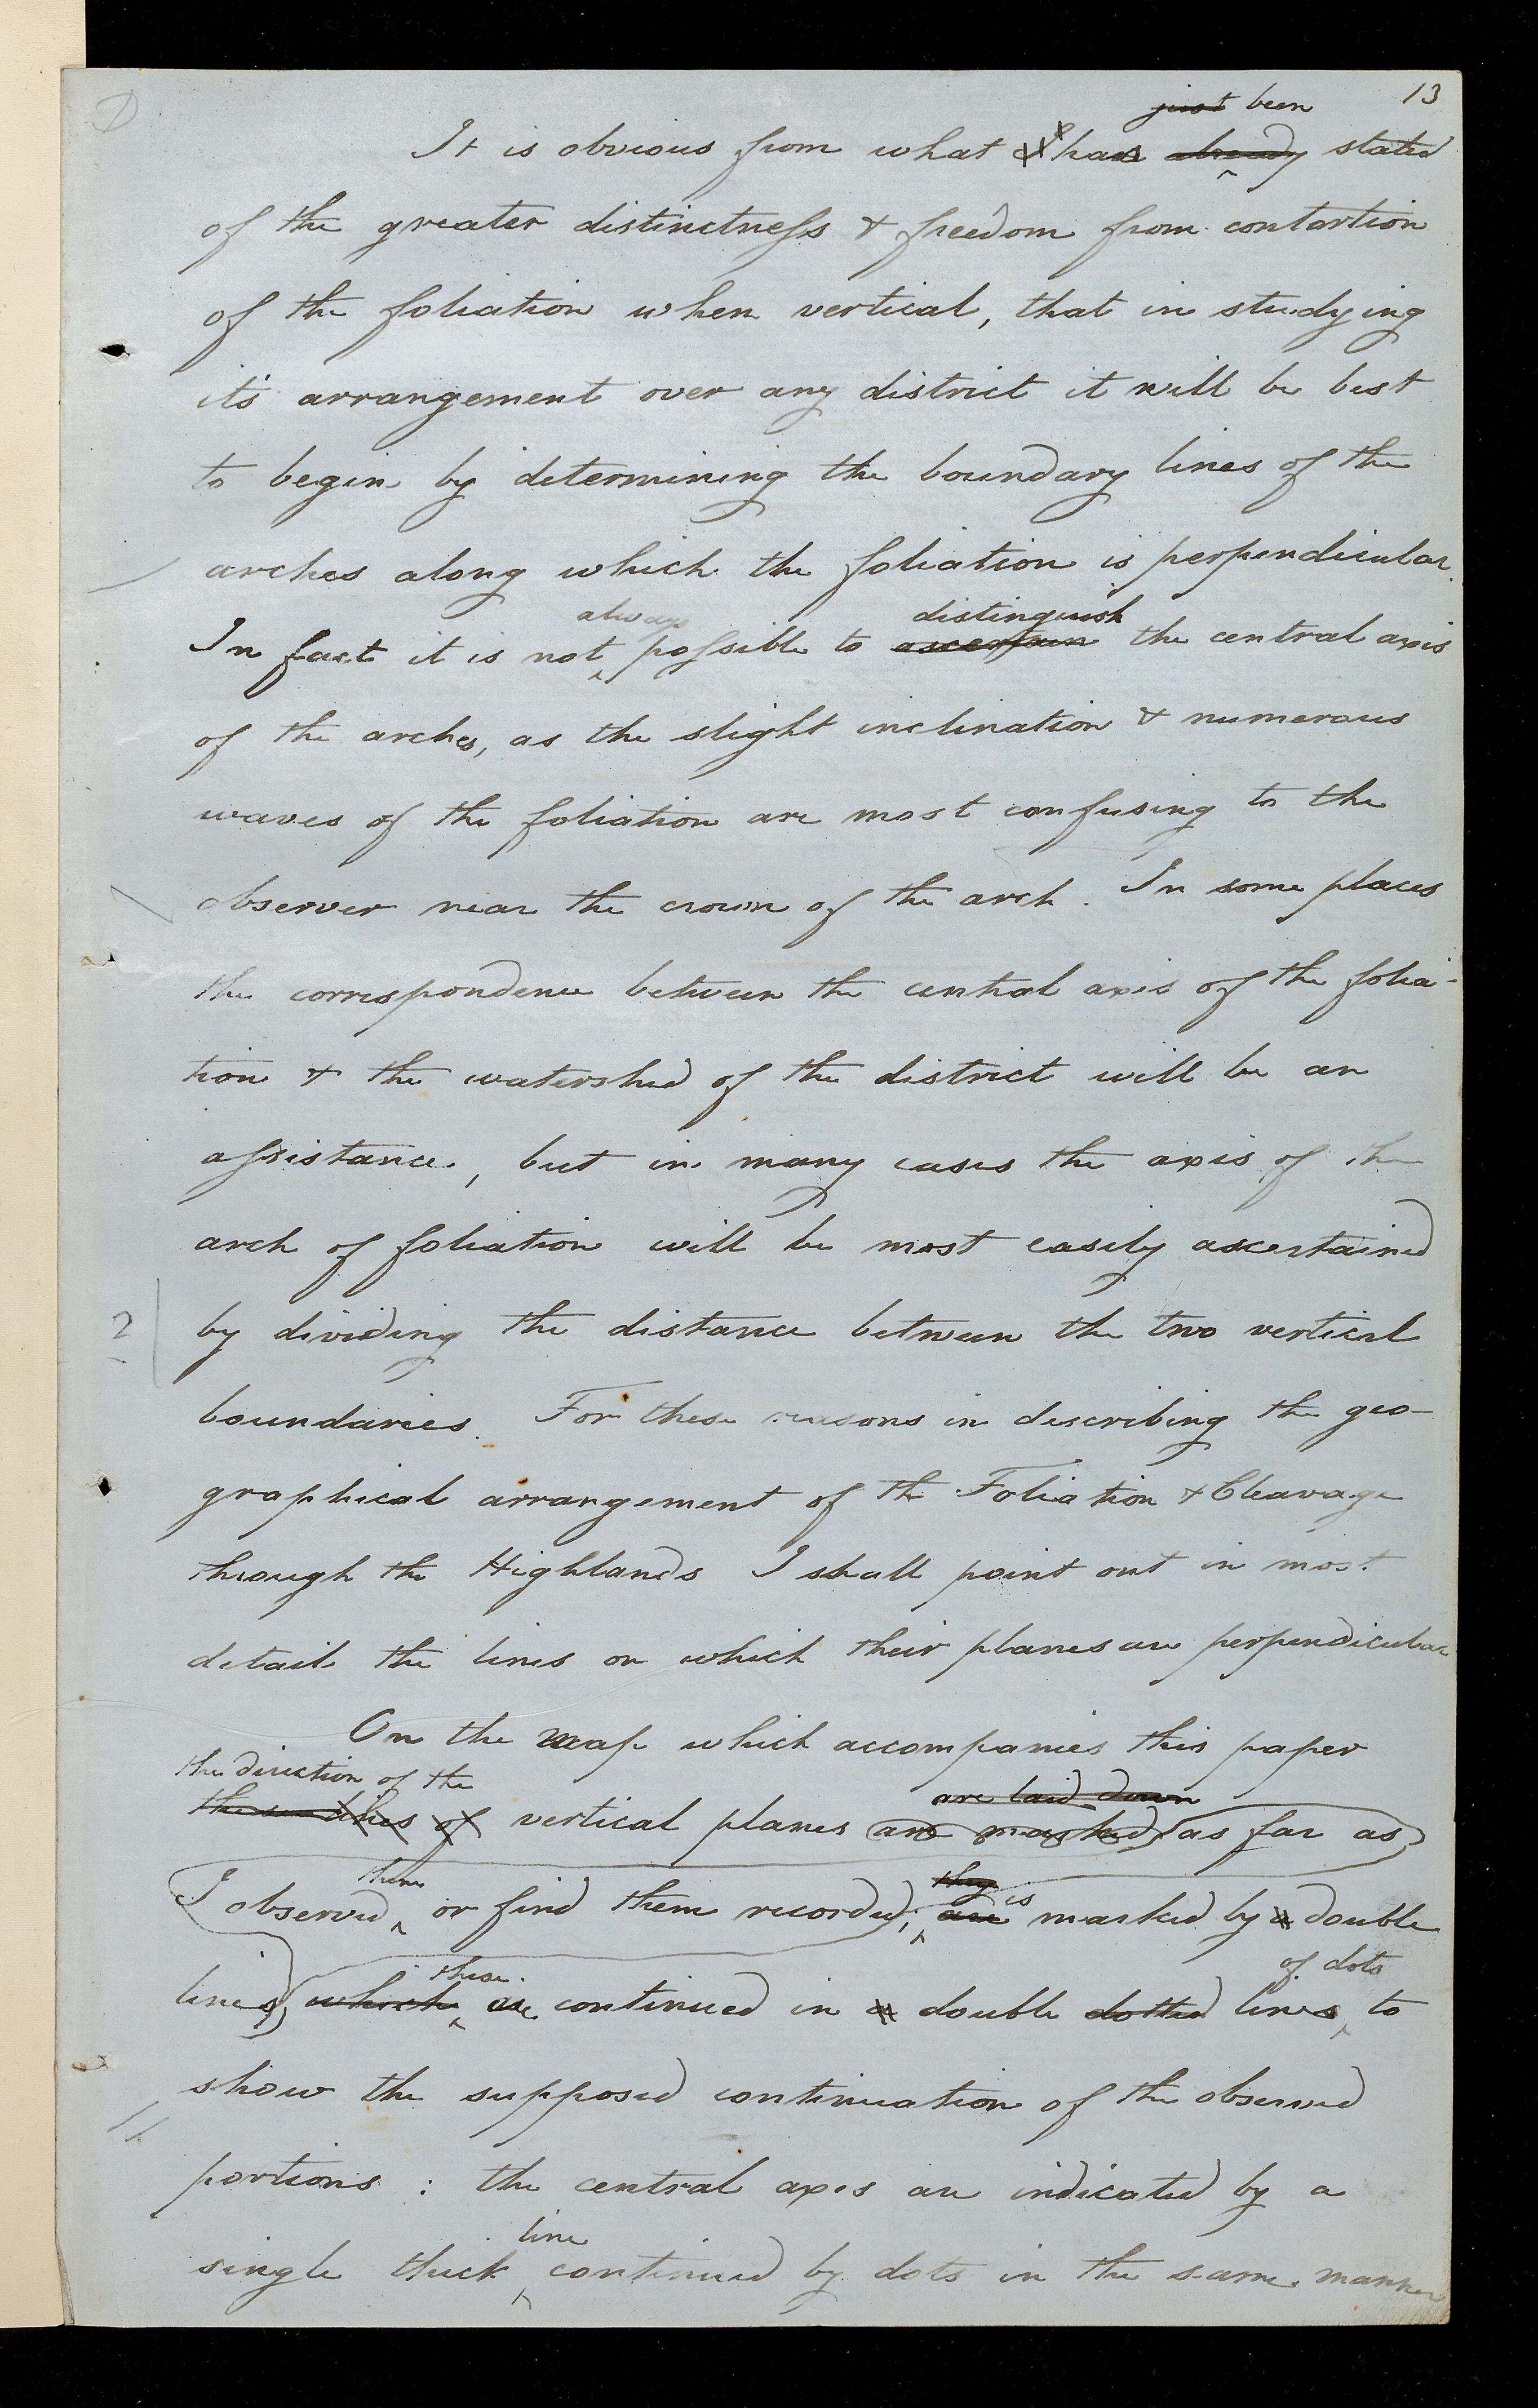 13
just been
It is obvious from what has already stated
of the greater distinctness & freedom from contortion
of the foliation when vertical, that in studying
it's arrangement over any district it will be best
to begin by determining the boundary lines of the
arches along which the foliation is perpendicular.
always distinguish
In fact it is not possible to ascertain the central axis
of the arches, as the slight inclination & numerous
waves of the foliation are most confusing to the
observer near the crown of the arch. In some places
the correspondence between the central axis of the folia-
tion & the watershed of the district will be an
assistance, but in many cases the axis of the
arch of foliation will be most easily ascertained
2 by dividing the distance between the two vertical
boundaries. For these reasons in describing the geo-
graphical arrangement of the Foliation & Cleavage
through the Highlands I shall point out in most
detail the lines on which their planes are perpendicular
On the map which accompanies this paper
the direction of the are laid down
of vertical planes are marked (as far as
them they is
I observed or find them recorded; are marked by a double
these of dots
lines, which are continued in a double dotted lines to
show the supposed continuation of the observed
portions: the central axes are indicated by a
line
single thick continued by dots in the same manner